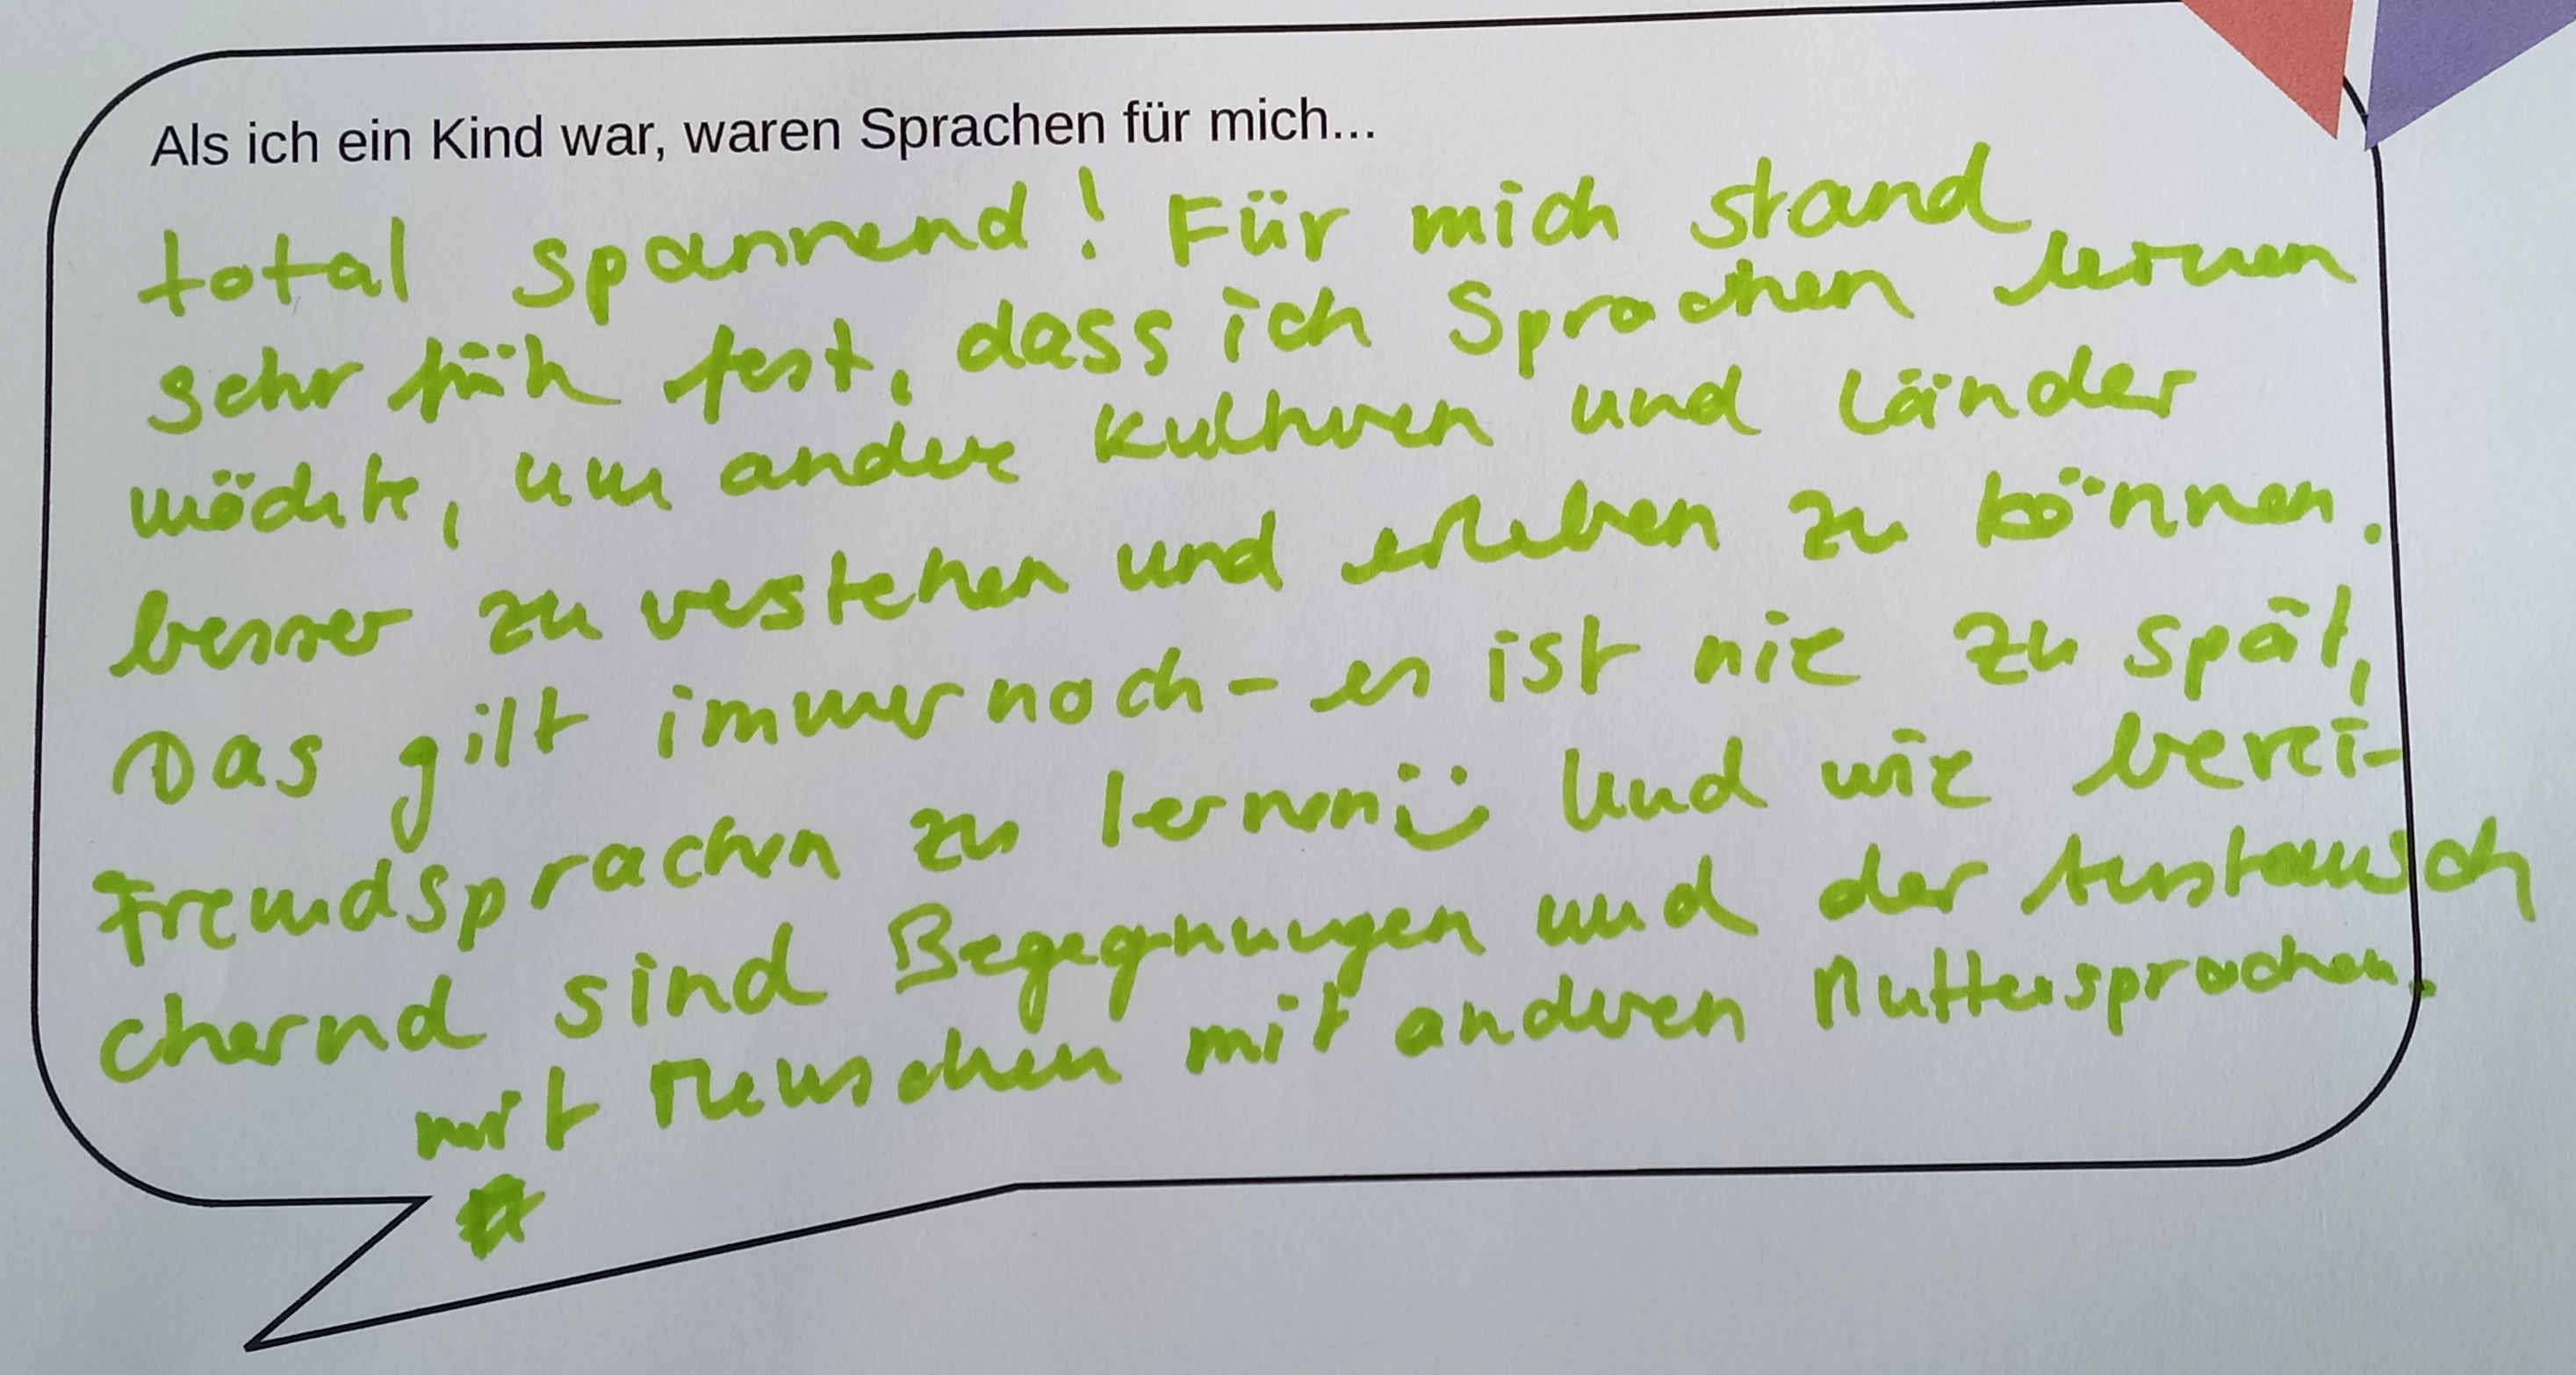 Als ich ein Kind war, waren Sprachen für mich...
total spannend! Für mich stand
sehr früh fest, dass ich Sprachen lernen
möchte, um andere Kulturen und Länder
besser zu verstehen und erleben zu können.
Das gilt immer noch - es ist nie zu spät,
Fremdsprachen zu lernen Und wie berei-
chernd sind Begegnungen und der Austausch
mit Menschen mit anderen Muttersprachen.